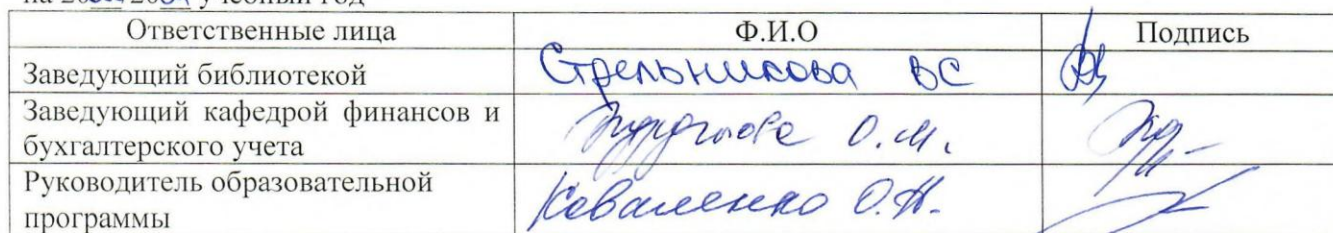 учебный год
Ответственные лица Ф.И.О Подпись
Заведующий библиотекой Стрельникова ВС
Заведующий кафедрой финансов и
бухгалтерского учета О.И.
Руководитель образовательной
программы Коваленко О.Н.